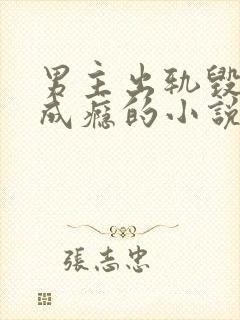 男主出轨毁
成瘾的小說
張志忠